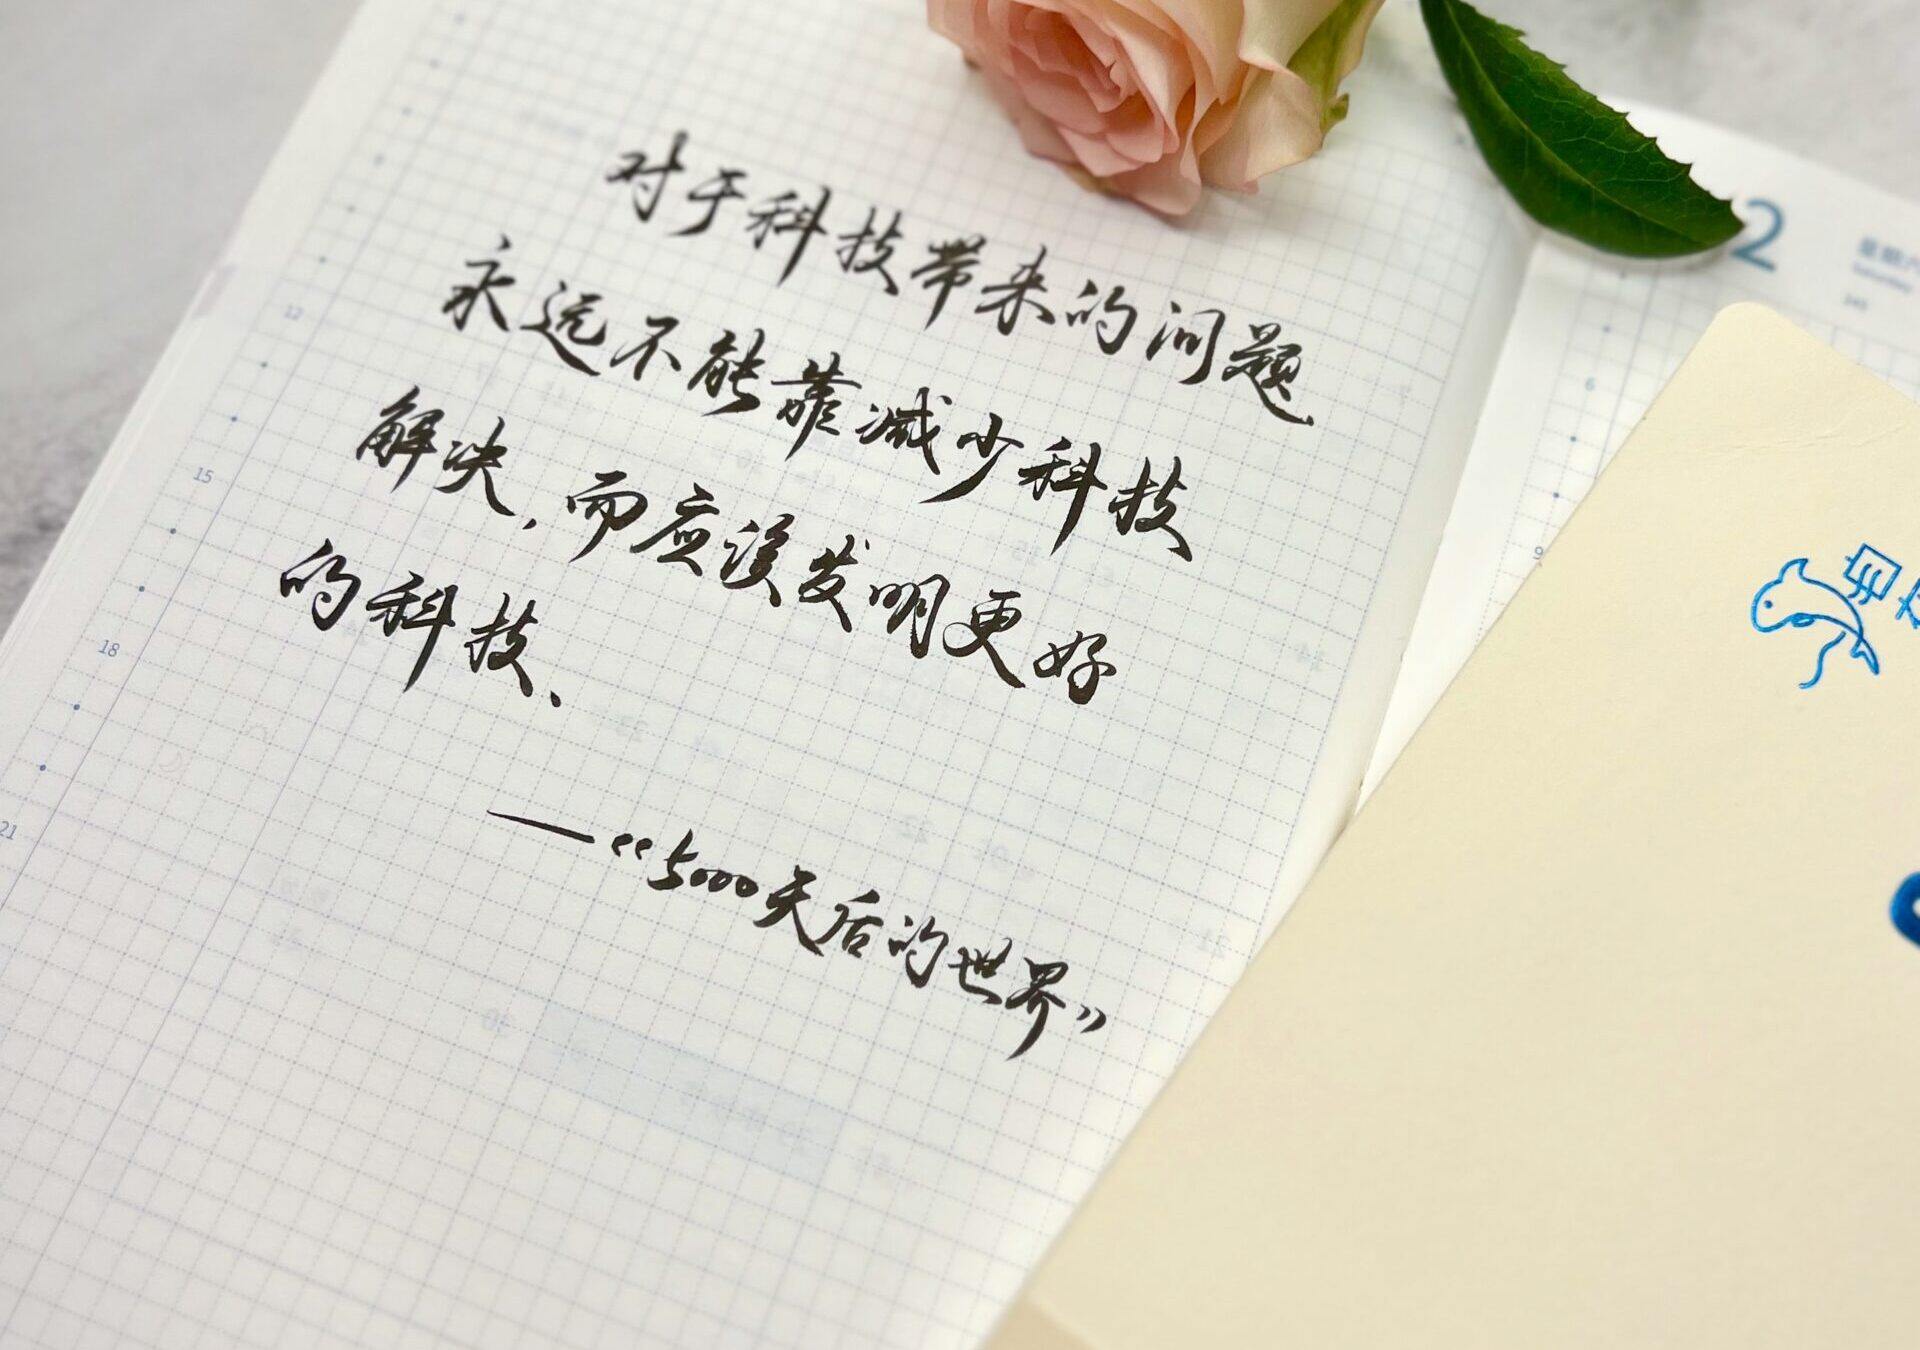 对于科技带来的问题
永远不能靠减少科技
解决,而应该发明更好
的科技、
—《5000天后的世界》
12
15
18
21
2
星期六
6
9